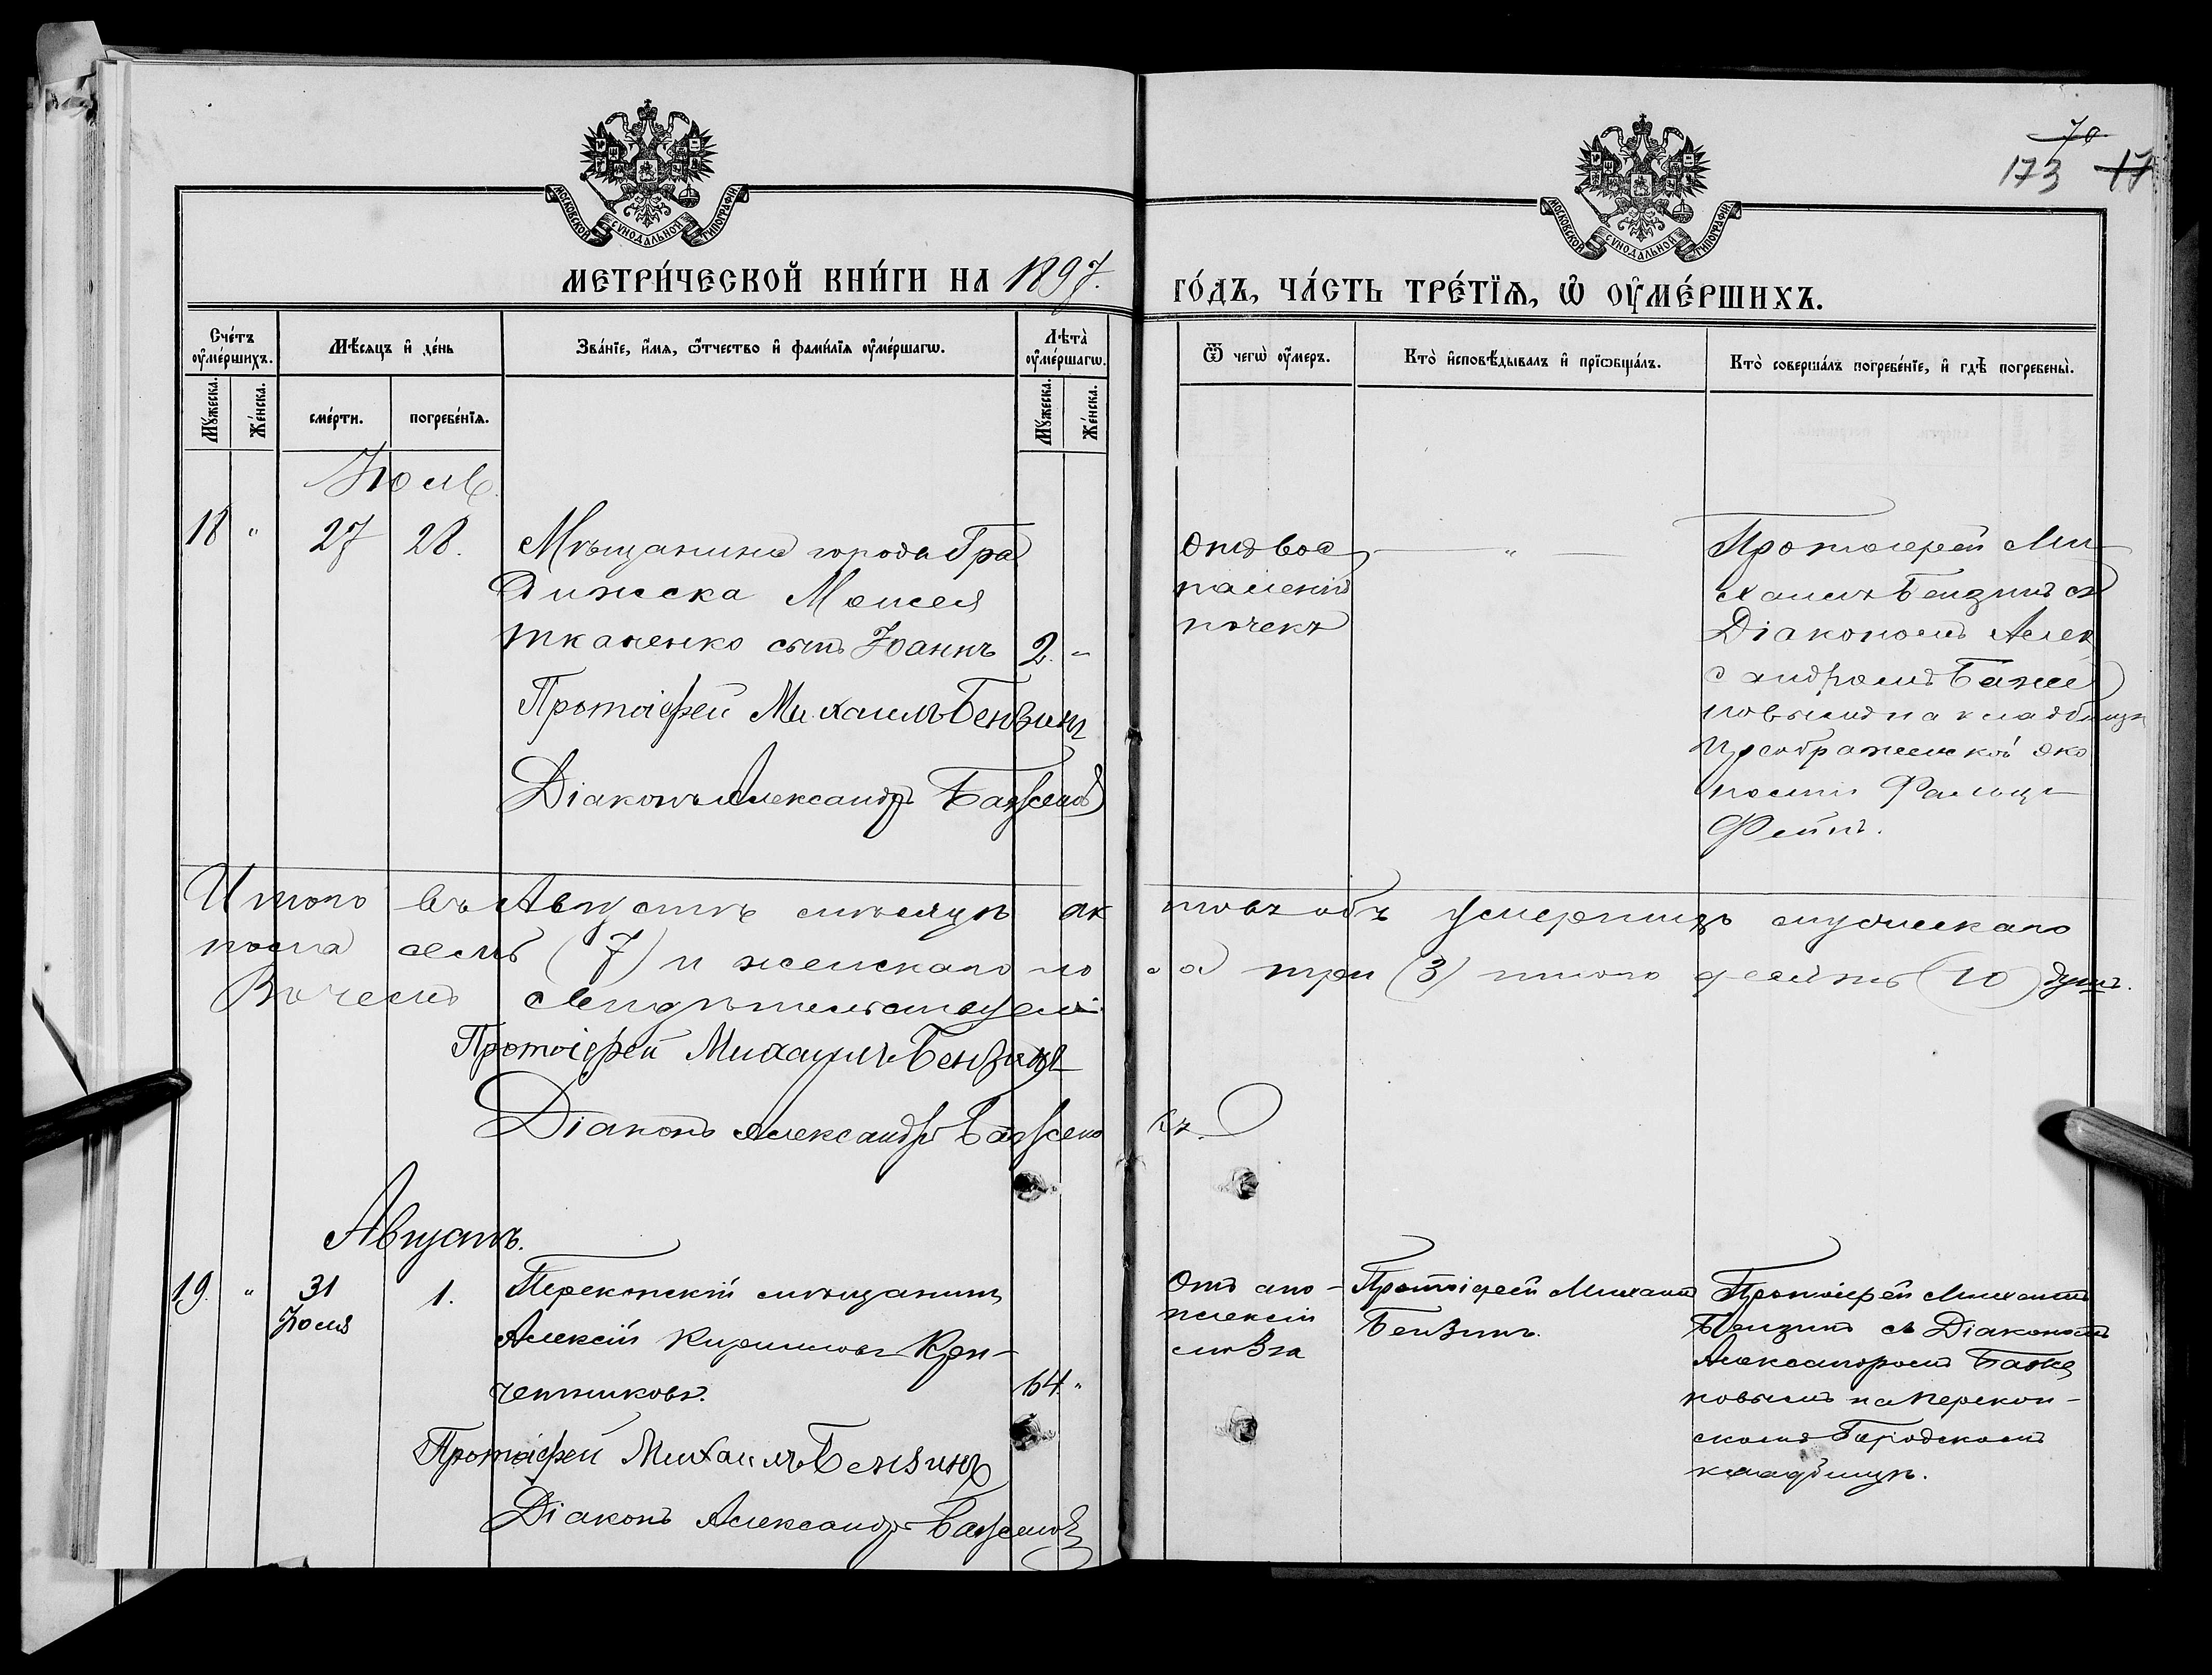 70
173 17
МОСКОВСКОЙ СѴНОДАЛЬНОЙ ТИПОГРАФІИ
МОСКОВСКОЙ СѴНОДАЛЬНОЙ ТИПОГРАФІИ
МЕТРИ́ЧЕСКОЙ КНИ́ГИ НА 1897.
ГО́ДЪ, ЧА́СТЬ ТРЕ́ТЇѦ, Ѡ҆ ОУ҆МЕ́РШИХЪ.
Сче́тъ оу҆ме́ршихъ.
Мѣ́сяцъ и҆ де́нь
Зва́нїе, и҆́мѧ, ѻ҆́тчество и҆ фами́лїѧ оу҆ме́ршагѡ.
Лѣ̀та оу҆ме́ршагѡ.
Ѿ чегѡ̀ оу҆́меръ.
Кто̀ и҆сповѣ́дывалъ и҆ прїѡбща́лъ.
Кто̀ соверша́лъ погребе́нїе, и҆ гдѣ̀ погребены̀.
Мꙋ́жеска.
Же́нска.
сме́рти.
погребе́нїѧ.
Мꙋ́жеска.
Же́нска.
Іюль.
18 " 27 28.
Мѣщанина города Гра
дижска Моисея
Ткаченко сынъ Іоаннъ 2. "
Протоіерей Михаилъ Бензинъ
Діаконъ Александръ Баженовъ
Отъ вос
паленія
почекъ
"
Протоіерей Ми
хаилъ Бензинъ съ
Діакономъ Алек
сандромъ Баже
новымъ на кладбищѣ
Преображенской эко
номіи Фальцъ
Фейнъ.
Итого въ Августѣ мѣсяцѣ ак
товъ объ умершихъ мужескаго
пола семь (7) и женскаго по
ла три (3) итого десять (10) душъ.
В чемъ свидѣтельствуемъ:
Протоіерей Михаилъ Бензинъ
Діаконъ Александръ Баженовъ.
Августъ.
19. " 31 Іюля 1.
Перекопскій мѣщанинъ
Алексій Кирилловъ Кре-
четниковъ. 64 "
Протоіерей Михаилъ Бензинъ
Діаконъ Александръ Баженовъ
Отъ апо-
плексіи
мозга
Протоіерей Михаилъ
Бензинъ.
Протоіерей Михаилъ
Бензинъ съ Діакономъ
Александромъ Баже
новымъ на Перекоп-
скомъ Городскомъ
кладбищѣ.